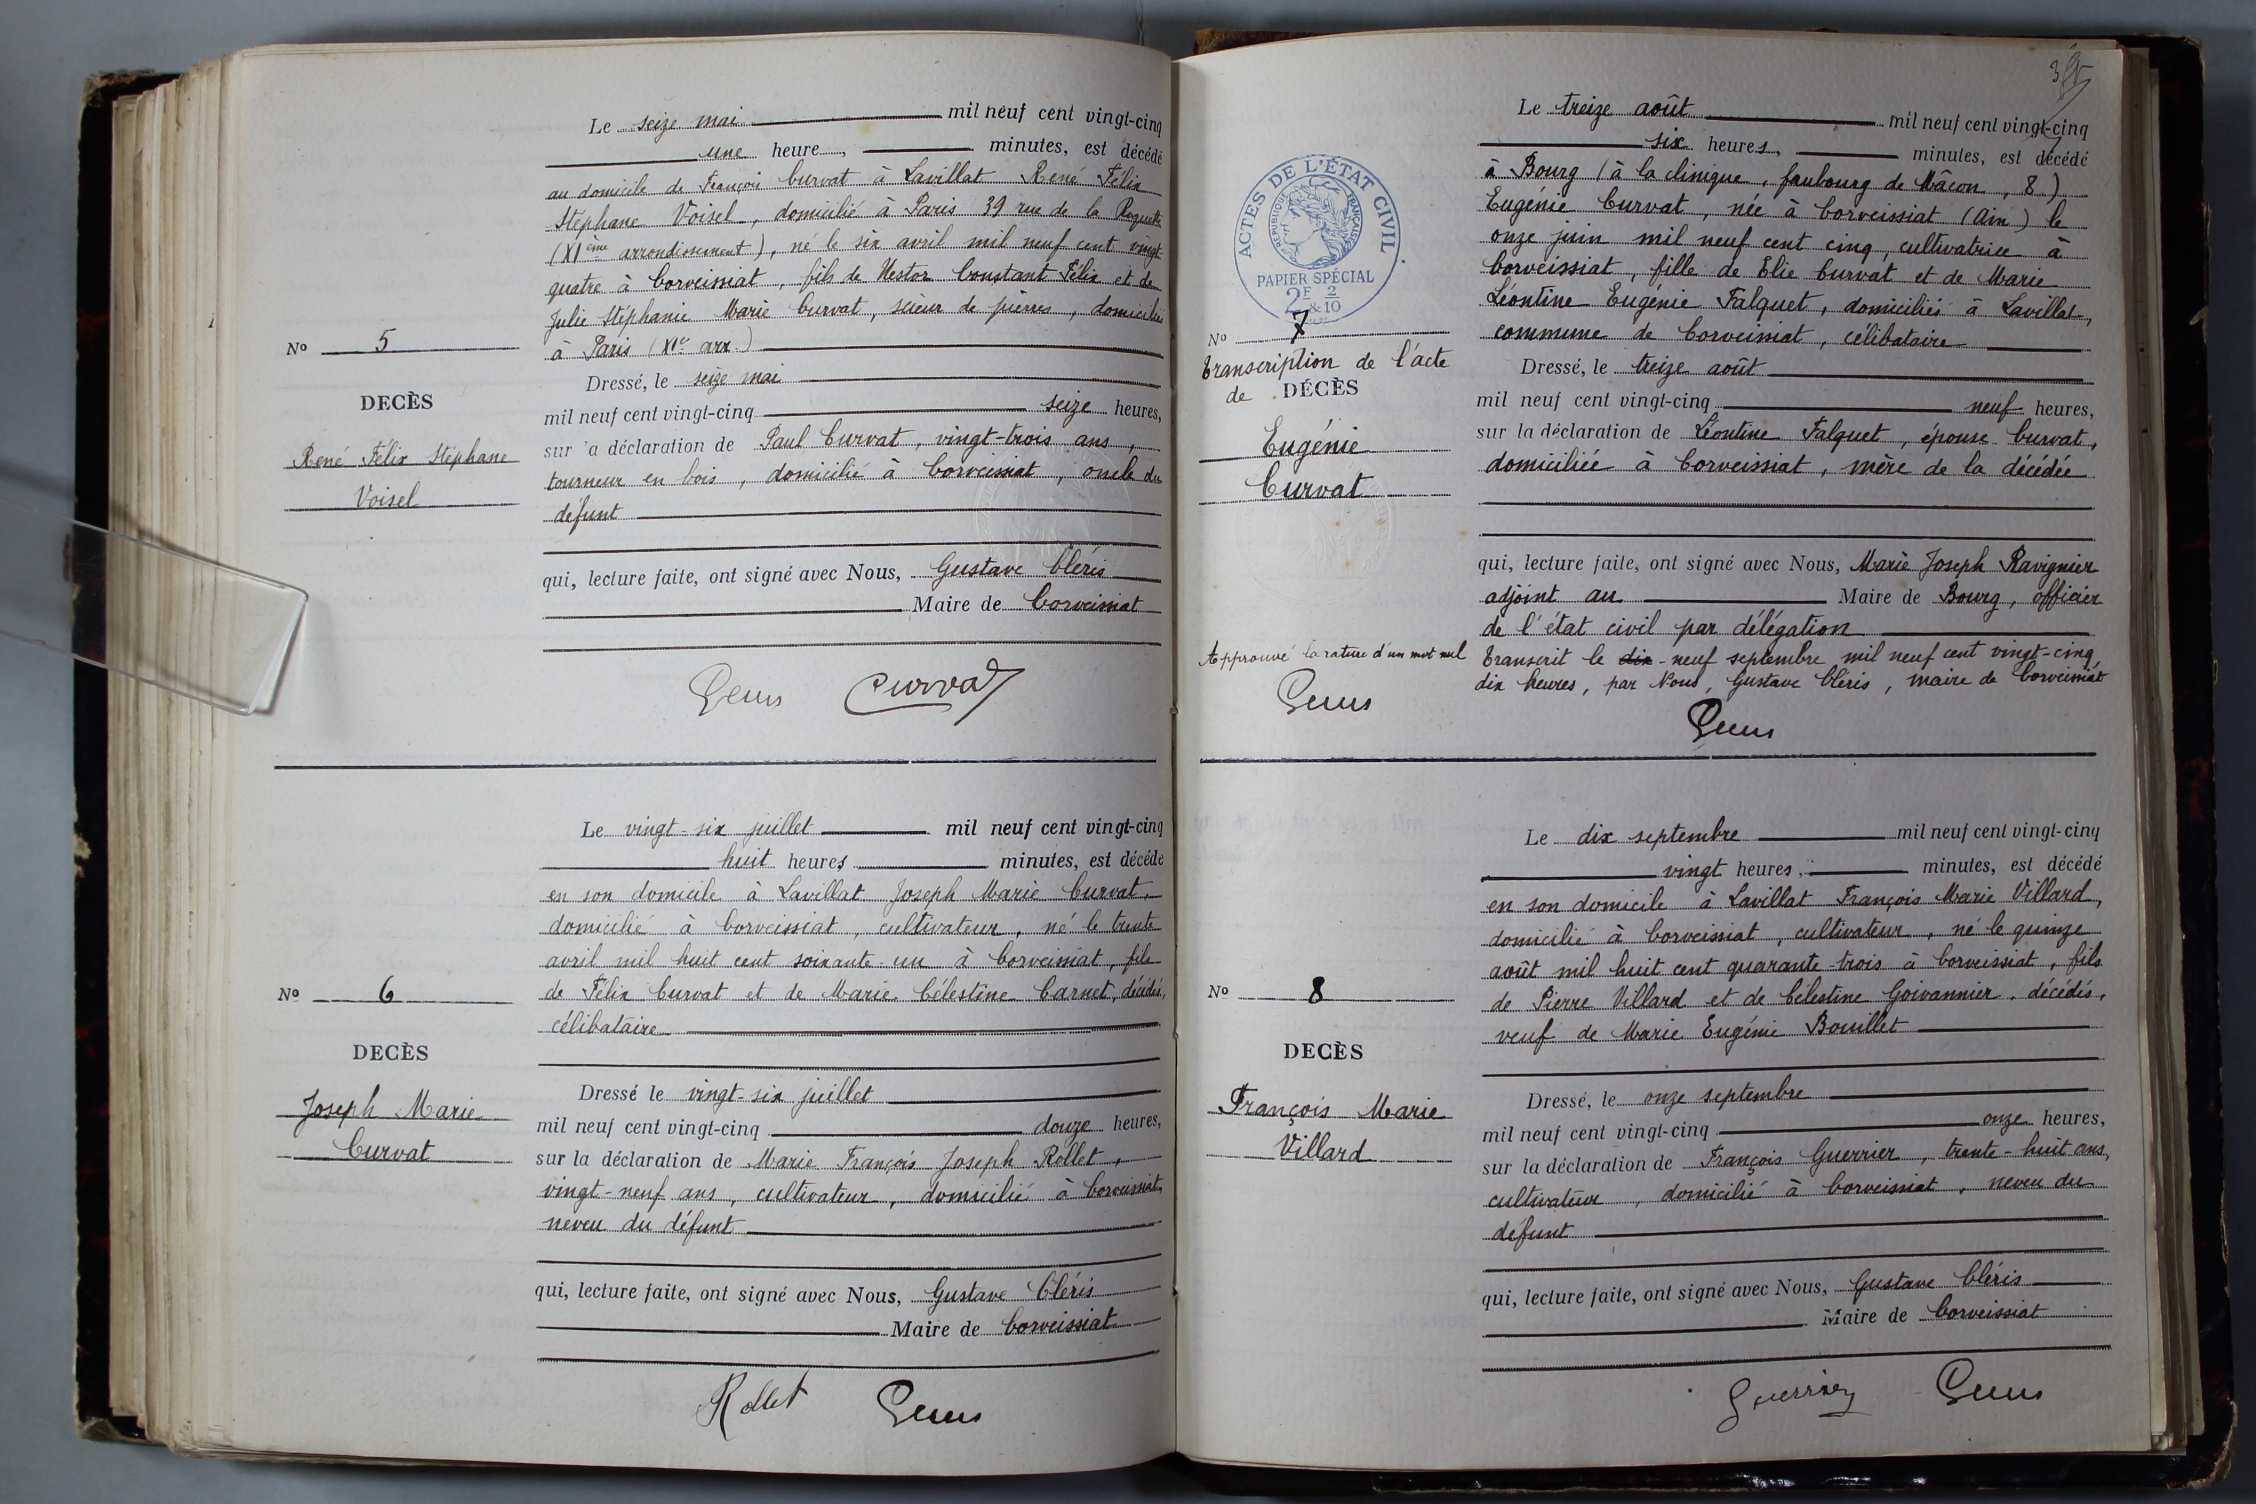 Le seize mai mil neuf cent vingt-cinq
une heure, minutes, est décédé
au domicile de François Curvat à Lavillat René Félix
Stéphane Voisel, domicilié à Paris 39 rue de la Roquette
(XIème arrondissement), né le six avril mil neuf cent vingt
quatre à Corveissiat, fils de Nestor Constant Félix et de
Julie Stéphanie Marie Curvat, scieur de pierres, domiciliés
à Paris (XIe arr.)
No 5
DECÈS
René Félix Stéphane
Voisel
Dressé, le seize mai
mil neuf cent vingt-cinq seize heures,
sur a déclaration de Paul Curvat, vingt-trois ans,
tourneur en bois, domicilié à Corveissiat, oncle du
défunt
qui, lecture faite, ont signé avec Nous, Gustave Cléris
Maire de Corveissiat
Curvat
Le vingt-six juillet mil neuf cent vingt-cinq
huit heures minutes, est décédé
en son domicile à Lavillat Joseph Marie Curvat,
domicilié à Corveissiat, cultivateur, né le trente
avril mil huit cent soixante-un à Corveissiat, fils
de Félix Curvat et de Marie Célestine Carnet, décédés,
célibataire
No 6
DECÈS
Joseph Marie
Curvat
Dressé le vingt-six juillet
mil neuf cent vingt-cinq douze heures,
sur la déclaration de Marie François Joseph Rollet,
vingt-neuf ans, cultivateur, domicilié à Corveissiat,
neveu du défunt
qui, lecture faite, ont signé avec Nous, Gustave Cléris
Maire de Corveissiat
Rollet
Le treize août mil neuf cent vingt-cinq
six heures, minutes, est décédé
à Bourg (à la clinique, faubourg de Mâcon, 8)
Eugénie Curvat, née à Corveissiat (Ain) le
onze juin mil neuf cent cinq, cultivatrice à
Corveissiat, fille de Elie Curvat et de Marie
Léontine Eugénie Falquet, domiciliés à Lavillat,
commune de Corveissiat, célibataire
ACTES DE L'ÉTAT CIVIL
RÉPUBLIQUE FRANÇAISE
PAPIER SPÉCIAL
2F & 2/10
No 7
Transcription de l'acte
de DÉCÈS
Eugénie
Curvat
Dressé, le treize août
mil neuf cent vingt-cinq neuf heures,
sur la déclaration de Léontine Falquet, épouse Curvat,
domiciliée à Corveissiat, mère de la décédée
qui, lecture faite, ont signé avec Nous, Marie Joseph Ravignier
adjoint au Maire de Bourg, officier
de l'état civil par délégation
Approuvé la rature d'un mot nul
Transcrit le dix-neuf septembre mil neuf cent vingt-cinq,
dix heures, par Nous, Gustave Cléris, maire de Corveissiat
Le dix septembre mil neuf cent vingt-cinq
vingt heures, minutes, est décédé
en son domicile à Lavillat François Marie Villard,
domicilié à Corveissiat, cultivateur, né le quinze
août mil huit cent quarante-trois à Corveissiat, fils
de Pierre Villard et de Célestine Goivannier, décédés,
veuf de Marie Eugénie Bouillet
No 8
DECÈS
François Marie
Villard
Dressé, le onze septembre
mil neuf cent vingt-cinq onze heures,
sur la déclaration de François Guerrier, trente-huit ans,
cultivateur, domicilié à Corveissiat, neveu du
défunt
qui, lecture faite, ont signé avec Nous, Gustave Cléris
Maire de Corveissiat
Guerrier